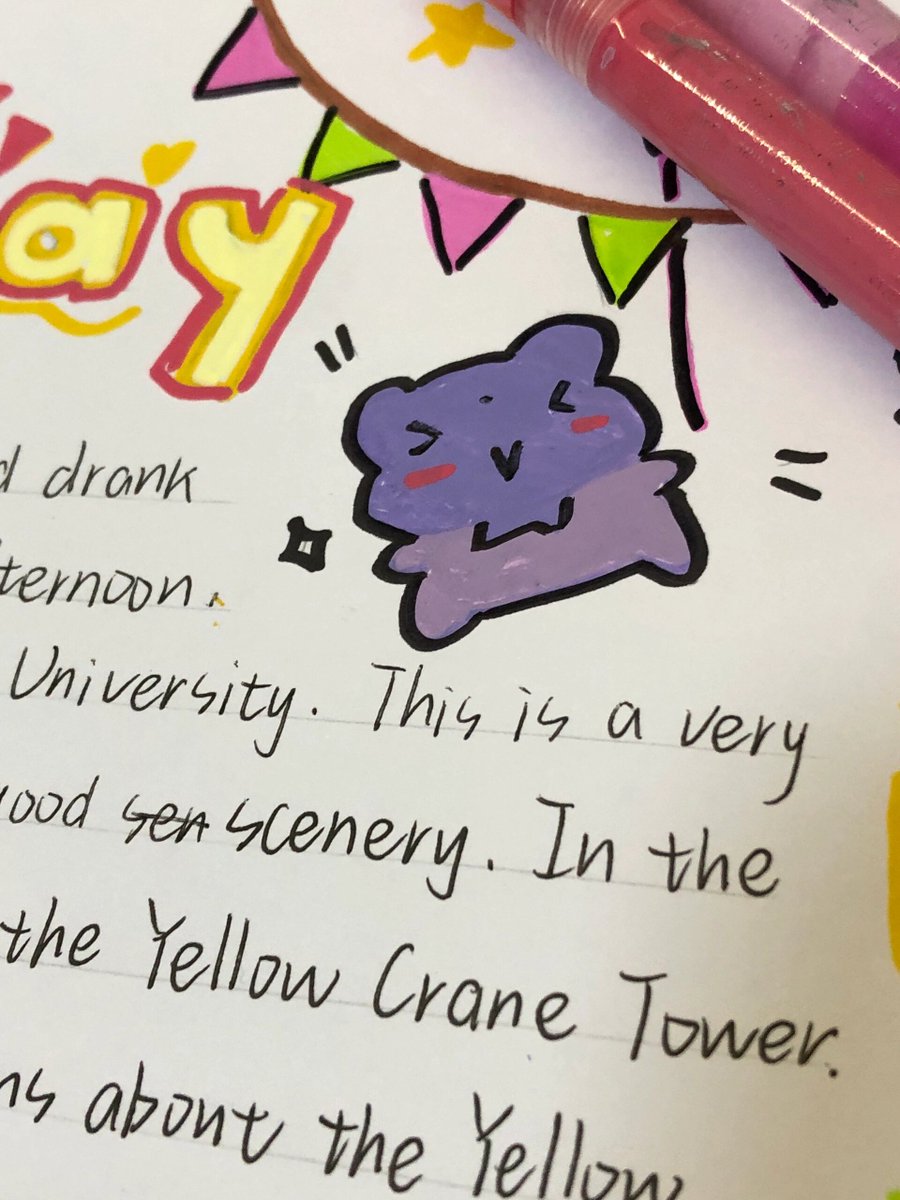 ay
drank
ternoon.
University. This is a very
ood sen scenery. In the
the Yellow Crane Tower.
ns about the Yellow